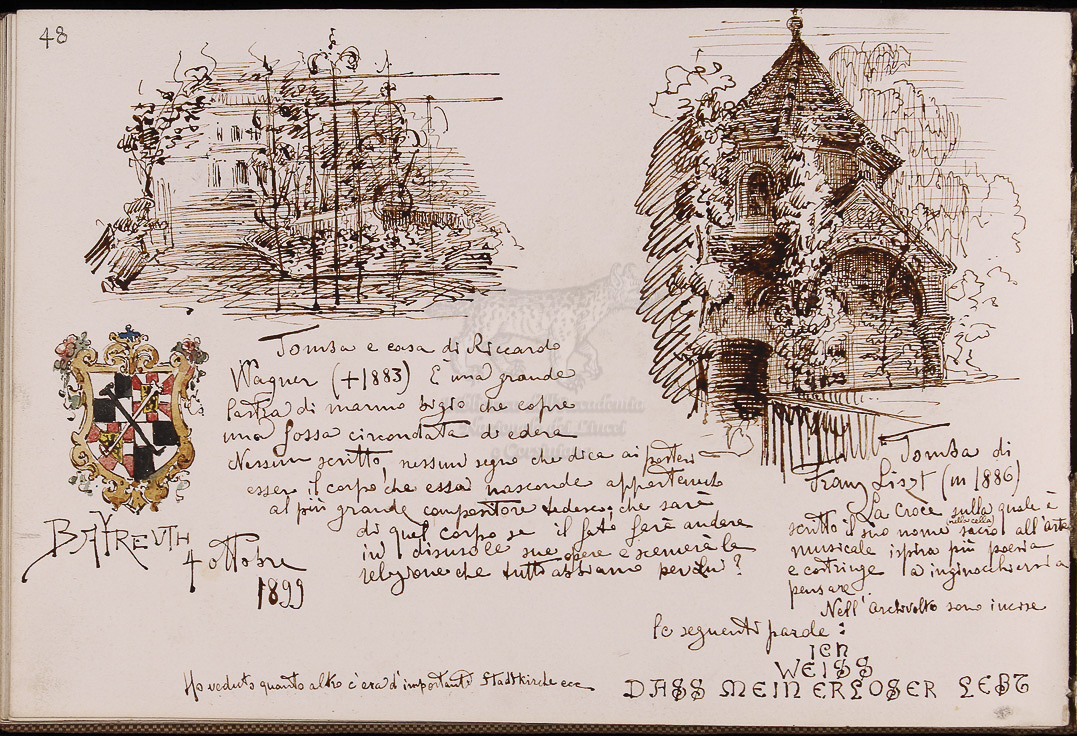 48
Tomba e casa di Riccardo
Wagner (+1883) È una grande
lastra di marmo bigio che copre
una fossa circondata di edera
Nessun scritto, nessun segno che dica ai posteri
esser il corpo che essa nasconde appartenuto
al più grande compositore tedesco; che sarà
di quel corpo se il fato farà andare
in disuso le sue opere e scemerà la
religione che tutti abbiamo per lui?
BAYREVTH
4 ottobre
1899
Tomba di
Franz Liszt (m 1886)
La Croce sulla quale è
scritto il suo nome (nella cella) sacro all'arte
musicale ispira più poesia
e costringe a inginocchiarsi a
pensare.
Nell'Archivolto sono incise
le seguenti parole:
ICH
WEISS
DASS MEIN ERLOSER LEBT
Ho veduto quanto altro c'era d'importante Stadtkirche ecc